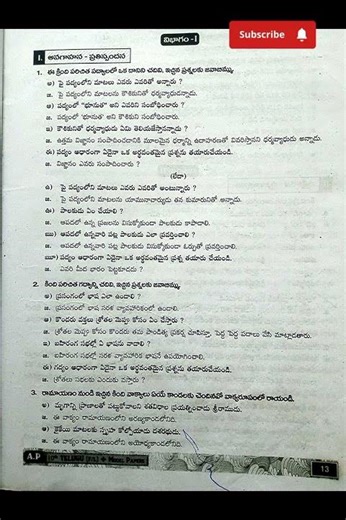 Subscribe
విభాగం-I
I. అవగాహన - ప్రతిస్పందన
1. ఈ క్రింది పరిచిత పద్యాలలో ఒక దానిని చదివి, ఇచ్చిన ప్రశ్నలకు జవాబివ్వు.
అ) పై పద్యంలోని మాటలు ఎవరు ఎవరితో అన్నారు ?
జ. పై పద్యంలోని మాటలను కౌశికునితో ధర్మవ్యాధుడన్నాడు.
ఆ) పద్యంలో "భూనుత" అని ఎవరిని సంబోధించారు ?
జ. పద్యంలో 'భూనుత' అని కౌశికుని సంబోధించారు.
ఇ) కౌశికునితో ధర్మవ్యాధుడు ఏమి తెలియజేస్తున్నాడు ?
జ. ఉత్తమ విజ్ఞానం సంపాదించడానికి మూలమైన ధర్మాన్ని ఉదాహరణతో వివరిస్తానని ధర్మవ్యాధుడు అన్నాడు.
ఈ) పద్యం ఆధారంగా ఏదైనా ఒక అర్థవంతమైన ప్రశ్నను తయారుచేయండి.
జ. విజ్ఞానం ఎవరు సంపాదించారు ?
(లేదా)
i) పై పద్యంలోని మాటలు ఎవరు ఎవరితో అంటున్నారు ?
జ. పై పద్యంలోని మాటలను యామునాచార్యుడు తన కుమారునితో అన్నాడు.
ii) పాలకుడు ఏం చేయాలి ?
జ. ఆపదలో ఉన్న ప్రజలను విసుక్కోకుండా పాలకుడు కాపాడాలి.
iii) ఆపదలో ఉన్నవారి పట్ల పాలకుడు ఎలా ప్రవర్తించాలి ?
జ. ఆపదలో ఉన్నవారి పట్ల పాలకుడు విసుక్కోకుండా ఓర్పుతో ప్రవర్తించాలి.
iv) పద్యం ఆధారంగా ఏదైనా ఒక అర్థవంతమైన ప్రశ్న తయారు చేయండి.
జ. ఎవరి మీద భారం పెట్టకూడదు ?
2. కింది పరిచిత గద్యాన్ని చదివి, ఇచ్చిన ప్రశ్నలకు జవాబివ్వు.
అ) ప్రసంగంలో భాష ఎలా ఉండాలి ?
జ. ప్రసంగంలో భాష సరళ వ్యావహారికంలో ఉండాలి.
ఆ) కొందరు వక్తలు శ్రోతల మెప్పు కోసం ఏం చేస్తారు ?
జ. శ్రోతల మెప్పు కోసం కొందరు తమ పాండిత్య ప్రకర్ష చూపిస్తూ, పెద్ద పెద్ద పదాలు వేసి మాట్లాడతారు.
ఇ) బహిరంగ సభల్లో ఏ భాషను వాడాలి ?
జ. బహిరంగ సభల్లో సరళ వ్యావహారిక భాషనే ఉపయోగించాలి.
ఈ) గద్యం ఆధారంగా ఏదైనా ఒక అర్థవంతమైన ప్రశ్నను తయారుచేయండి.
జ. శ్రోతలు సభలకు ఎందుకు వస్తారు ?
3. రామాయణం నుండి ఇచ్చిన కింది వాక్యాలు ఏయే కాండలకు చెందినవో వాక్యరూపంలో రాయండి.
అ) మృగాన్ని ప్రాణాలతో పట్టుకోవాలని శతవిధాల ప్రయత్నించాడు శ్రీరాముడు.
జ. ఈ వాక్యం రామాయణంలోని అరణ్యకాండలోనిది.
ఆ) కైకేయి మాటలకు స్పృహ కోల్పోయాడు దశరథుడు.
జ. ఈ వాక్యం రామాయణంలోని అయోధ్యాకాండలోనిది.
A.P 10th TELUGU (F.L) ✦ MODEL PAPERS
13